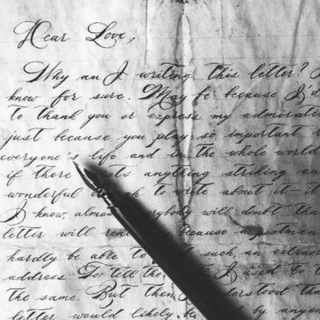 Dear Love,
Why an I writing this letter? I
know for sure. May be because I'd
to thank you or express my admirati
just because you play so important
everyone's life and in the whole world
if there sts anything striding an
wonderful h to write about it - it
I know, almos ybody will doubt tha
letter will rea because a postman
hardly be able to such, an extraor
address. To tell the I used to t
the same. But then derstood tha
letter would likely be by anyon